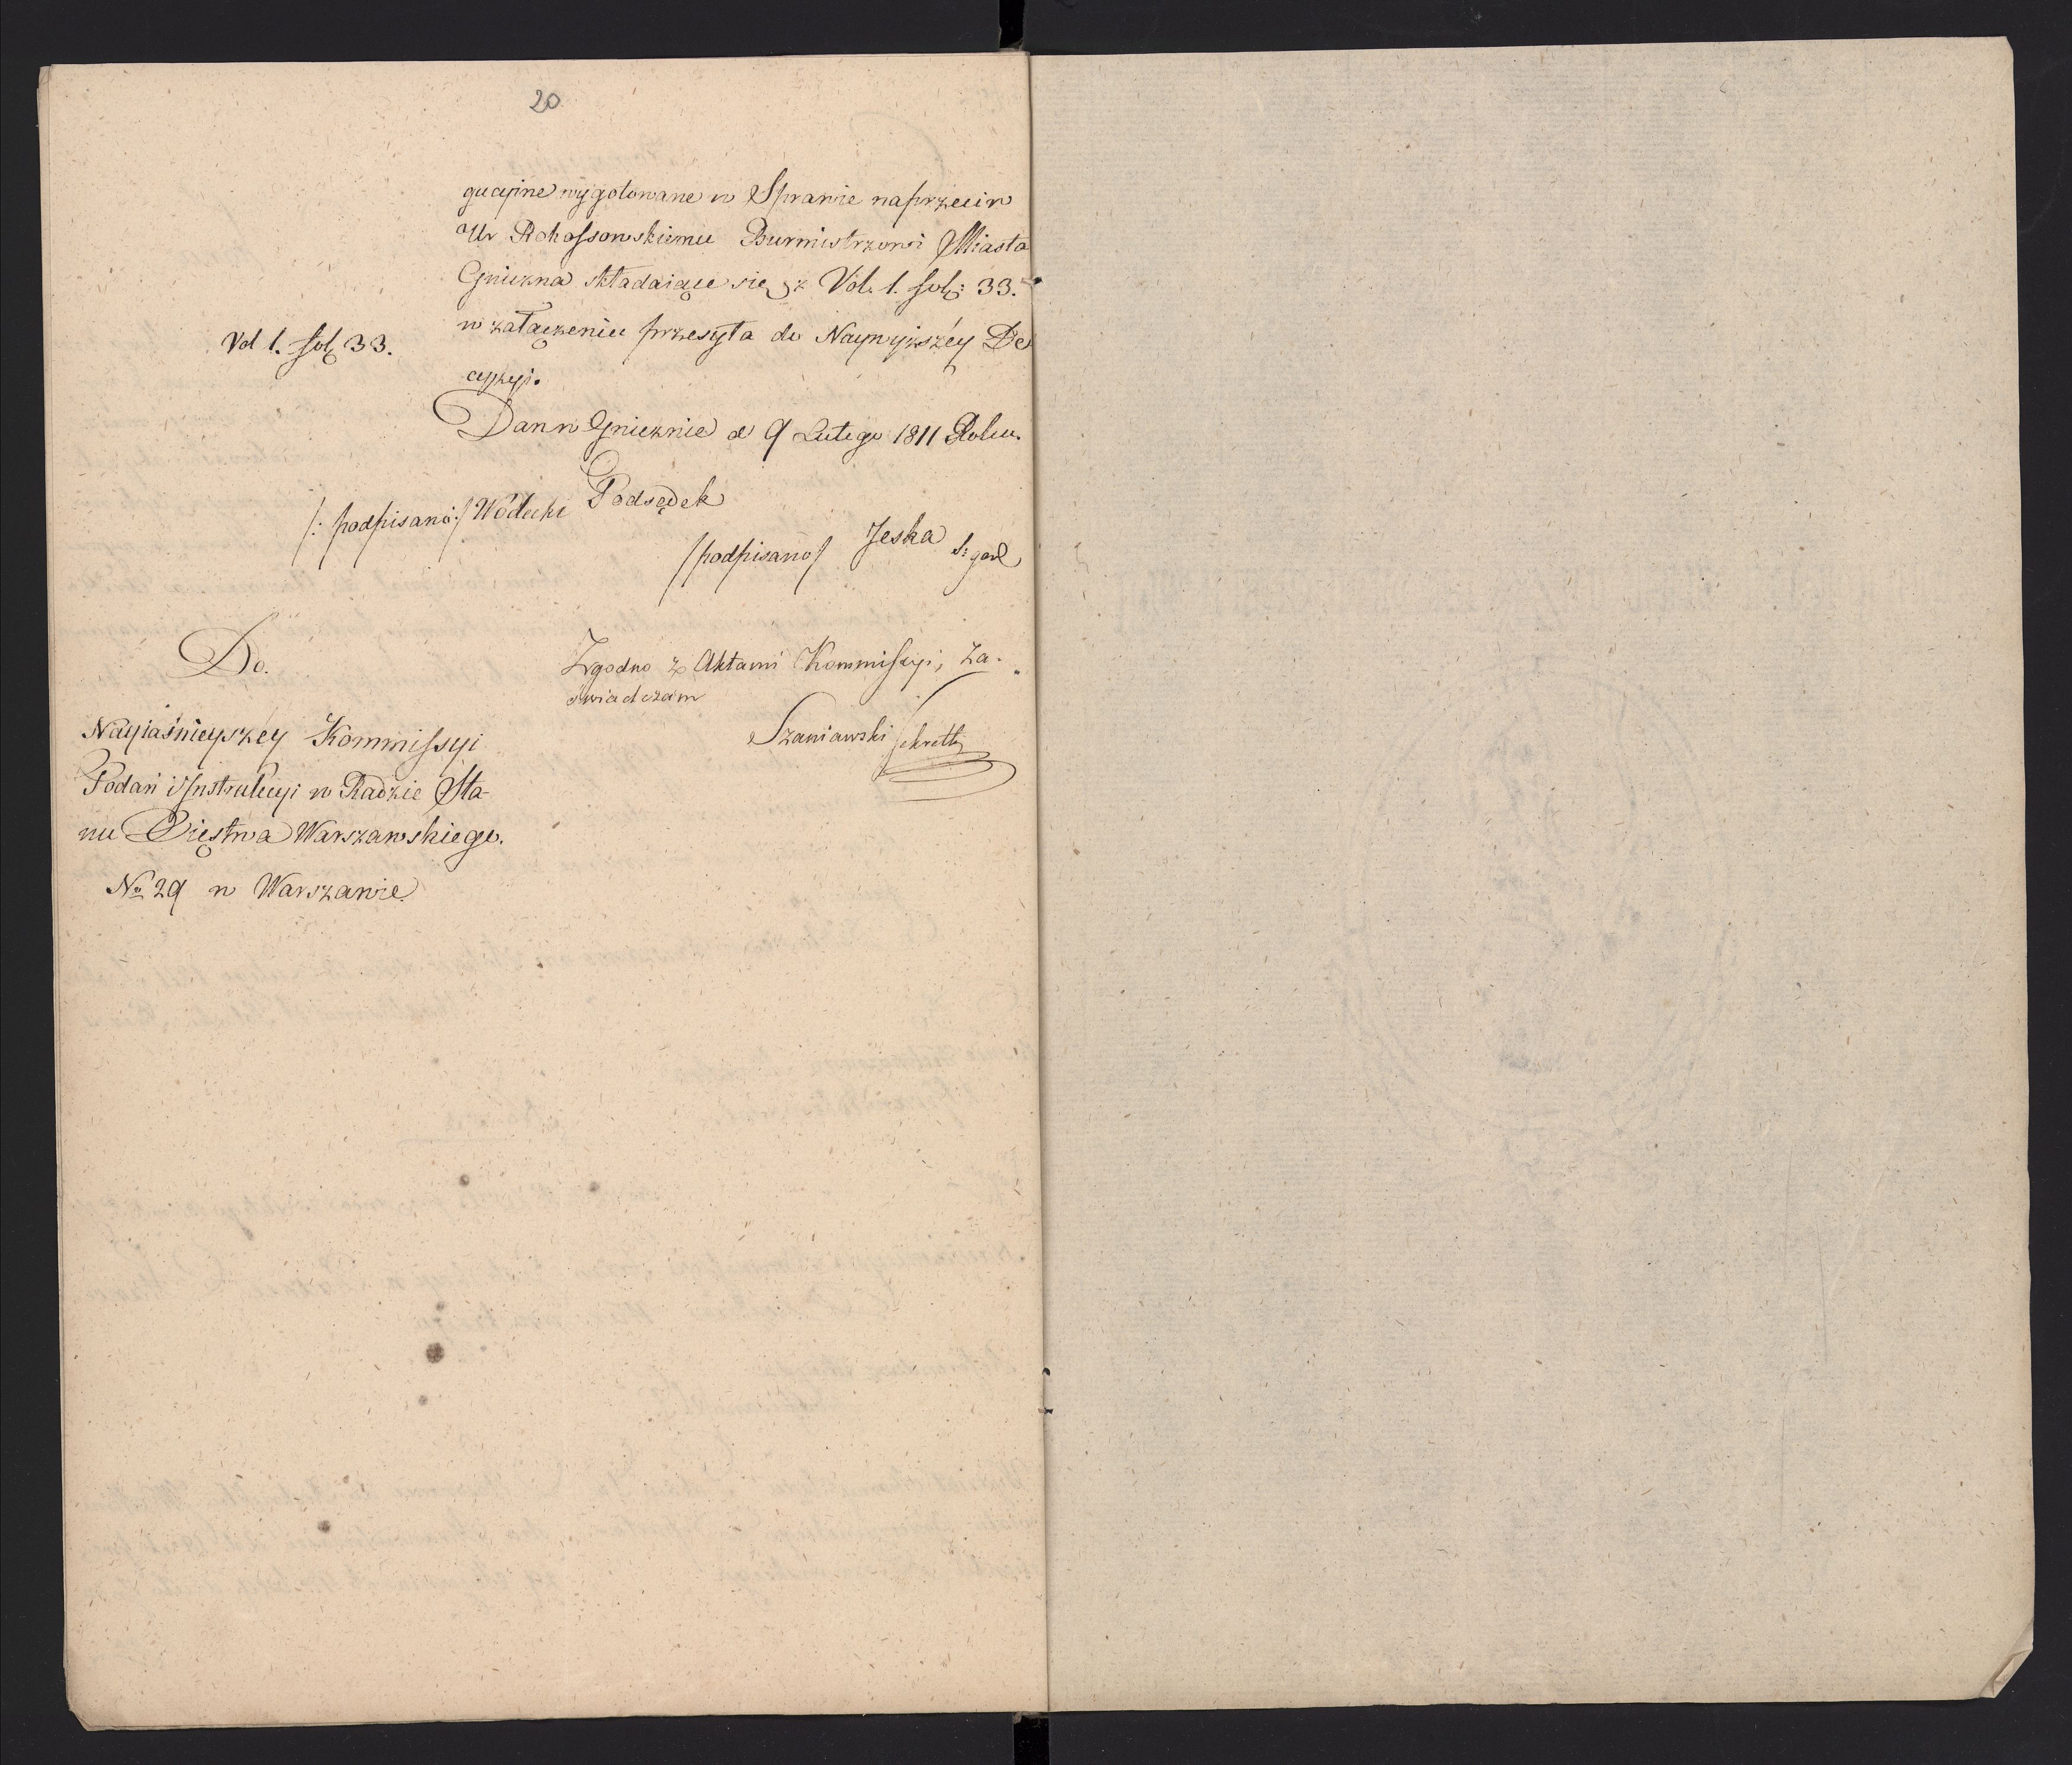 20
gucyine wygotowane w Sprawie naprzeciw
Ur Rokossowskiemu Burmistrzowi Miasta
Gniezna składaiące się z Vol. 1. fol: 33.
w załączeniu przesyła do Naywyższéy De
cyzyi.
Vol 1. fol 33.
Dan w Gnieznie d 9 Lutego 1811 Roku.
/: podpisano:/ Wodecki Podsędek
/podpisano/ Jeska
Zgodno z Aktami Kommissyi, za-
świadczam
Szaniawski Sekret
Do.
Nayiaśnieyszéy Kommissyi
Podań i Instrukcyi w Radzie Sta-
nu Xięstwa Warszawskiego.
No 29 w Warszawie